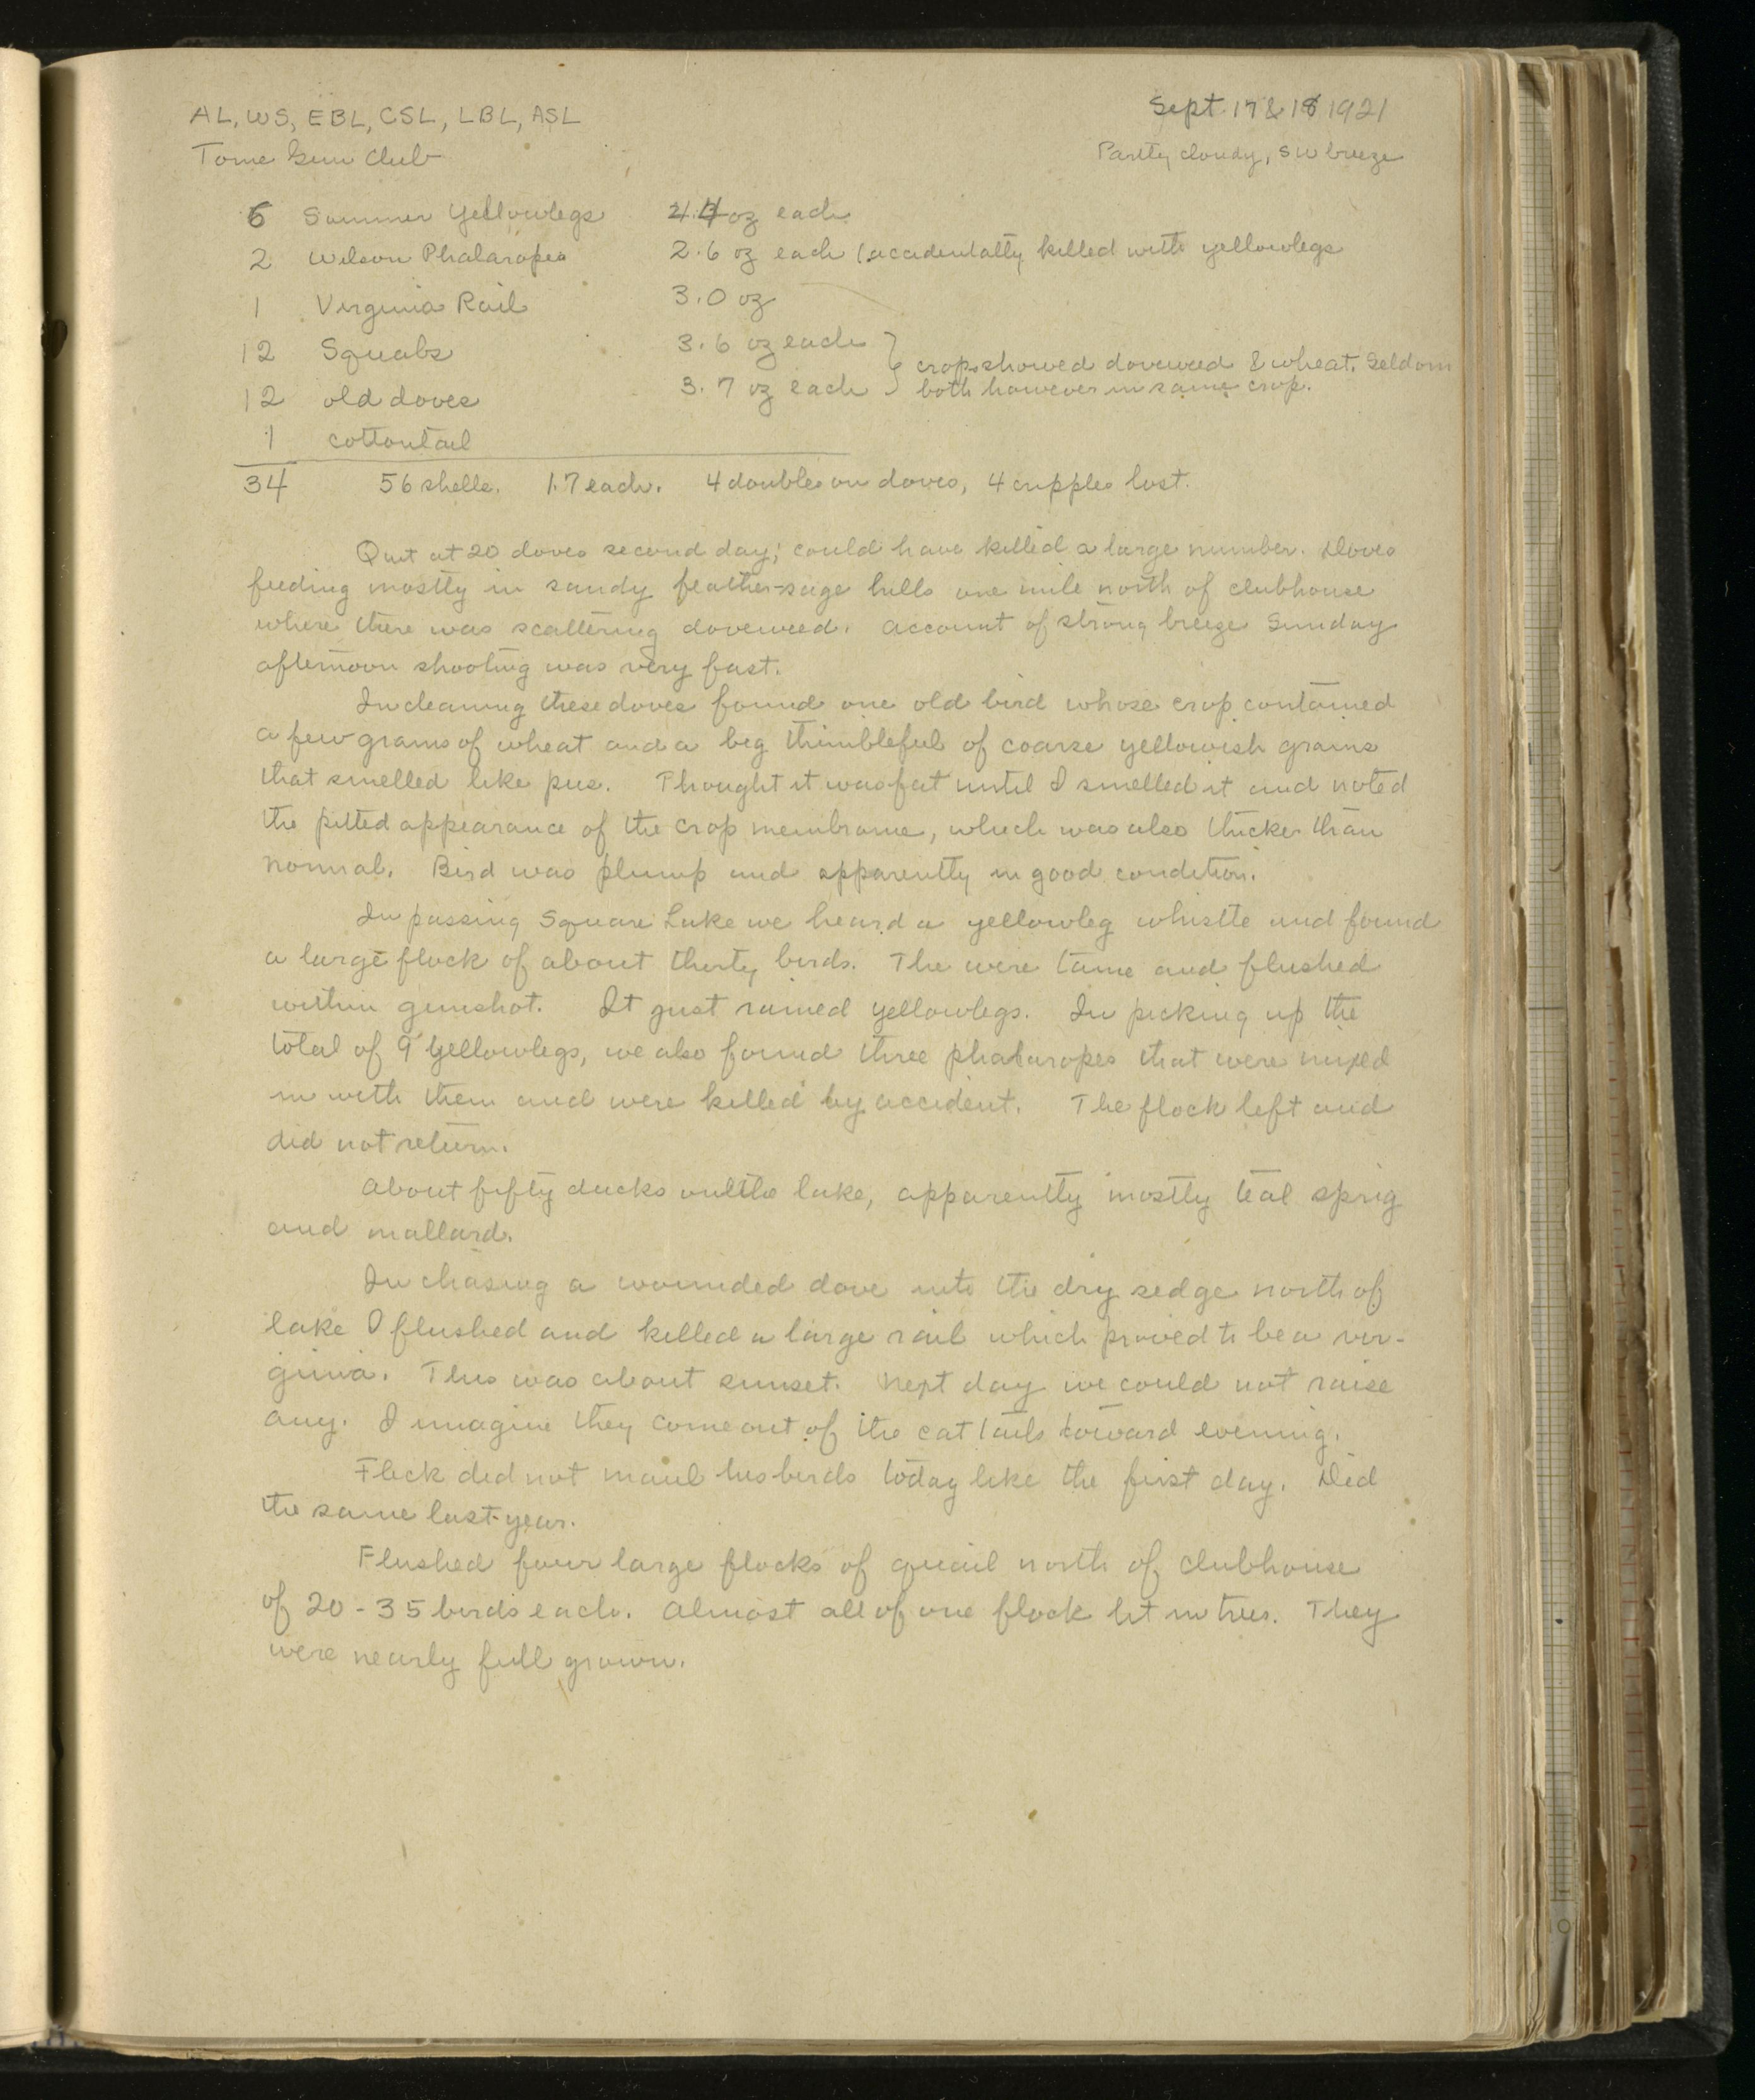 AL, WS, EBL, CSL, LBL, ASL
Sept. 17 & 18 1921
Tome Gun Club
Partly cloudy, SW breeze
6 Summer Yellowlegs 4.4 oz each
2 Wilson Phalaropes 2.6 oz each (accidentally killed with yellowlegs
1 Virginia Rail 3.0 oz
12 Squabs 3.6 oz each
12 old doves 3.7 oz each
crops showed doveweed & wheat. Seldom
both however in same crop.
1 cottontail
34 56 shells. 1.7 each. 4 doubles on doves, 4 cripples lost.
Quit at 20 doves second day; could have killed a large number. Doves
feeding mostly in sandy feather-sage hills one mile north of clubhouse
where there was scattering doveweed. Account of strong breeze Sunday
afternoon shooting was very fast.
In cleaning these doves found one old bird whose crop contained
a few grains of wheat and a big thimbleful of coarse yellowish grains
that smelled like pus. Thought it was fat until I smelled it and noted
the pitted appearance of the crop membrane, which was also thicker than
normal. Bird was plump and apparently in good condition.
In passing Square Lake we heard a yellowleg whistle and found
a large flock of about thirty birds. The were tame and flushed
within gunshot. It just rained yellowlegs. In picking up the
total of 9 yellowlegs, we also found three phalaropes that were mixed
in with them and were killed by accident. The flock left and
did not return.
About fifty ducks on the lake, apparently mostly teal sprig
and mallard.
In chasing a wounded dove into the dry sedge north of
lake I flushed and killed a large rail which proved to be a Vir-
ginia. This was about sunset. Next day we could not raise
any. I imagine they come out of the cat tails toward evening.
Flick did not maul his birds today like the first day. Did
the same last year.
Flushed four large flocks of quail north of clubhouse
of 20 - 35 birds each. Almost all of one flock lit in trees. They
were nearly full grown.